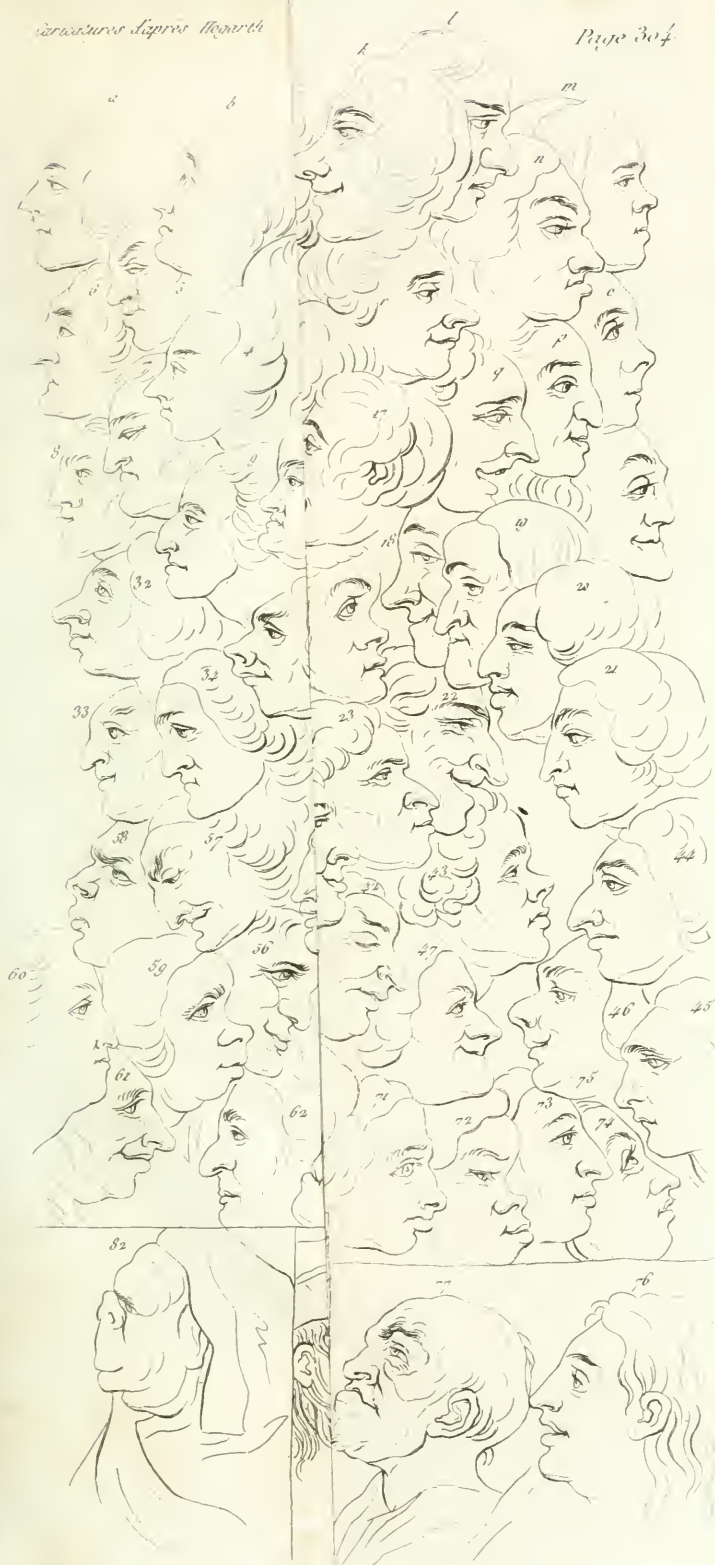 Caricatures d'après Hogarth
Page 304
l
k
a
b
m
n
6
5
c
4
p
q
17
8
9
18
19
32
20
34
21
33
22
23
58
57
43
44
32
60
59
56
47
46
45
61
62
71
72
73
75
74
82
77
76